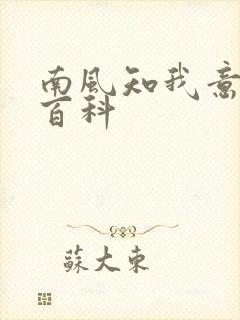 南風知我意
百科
蘇大東